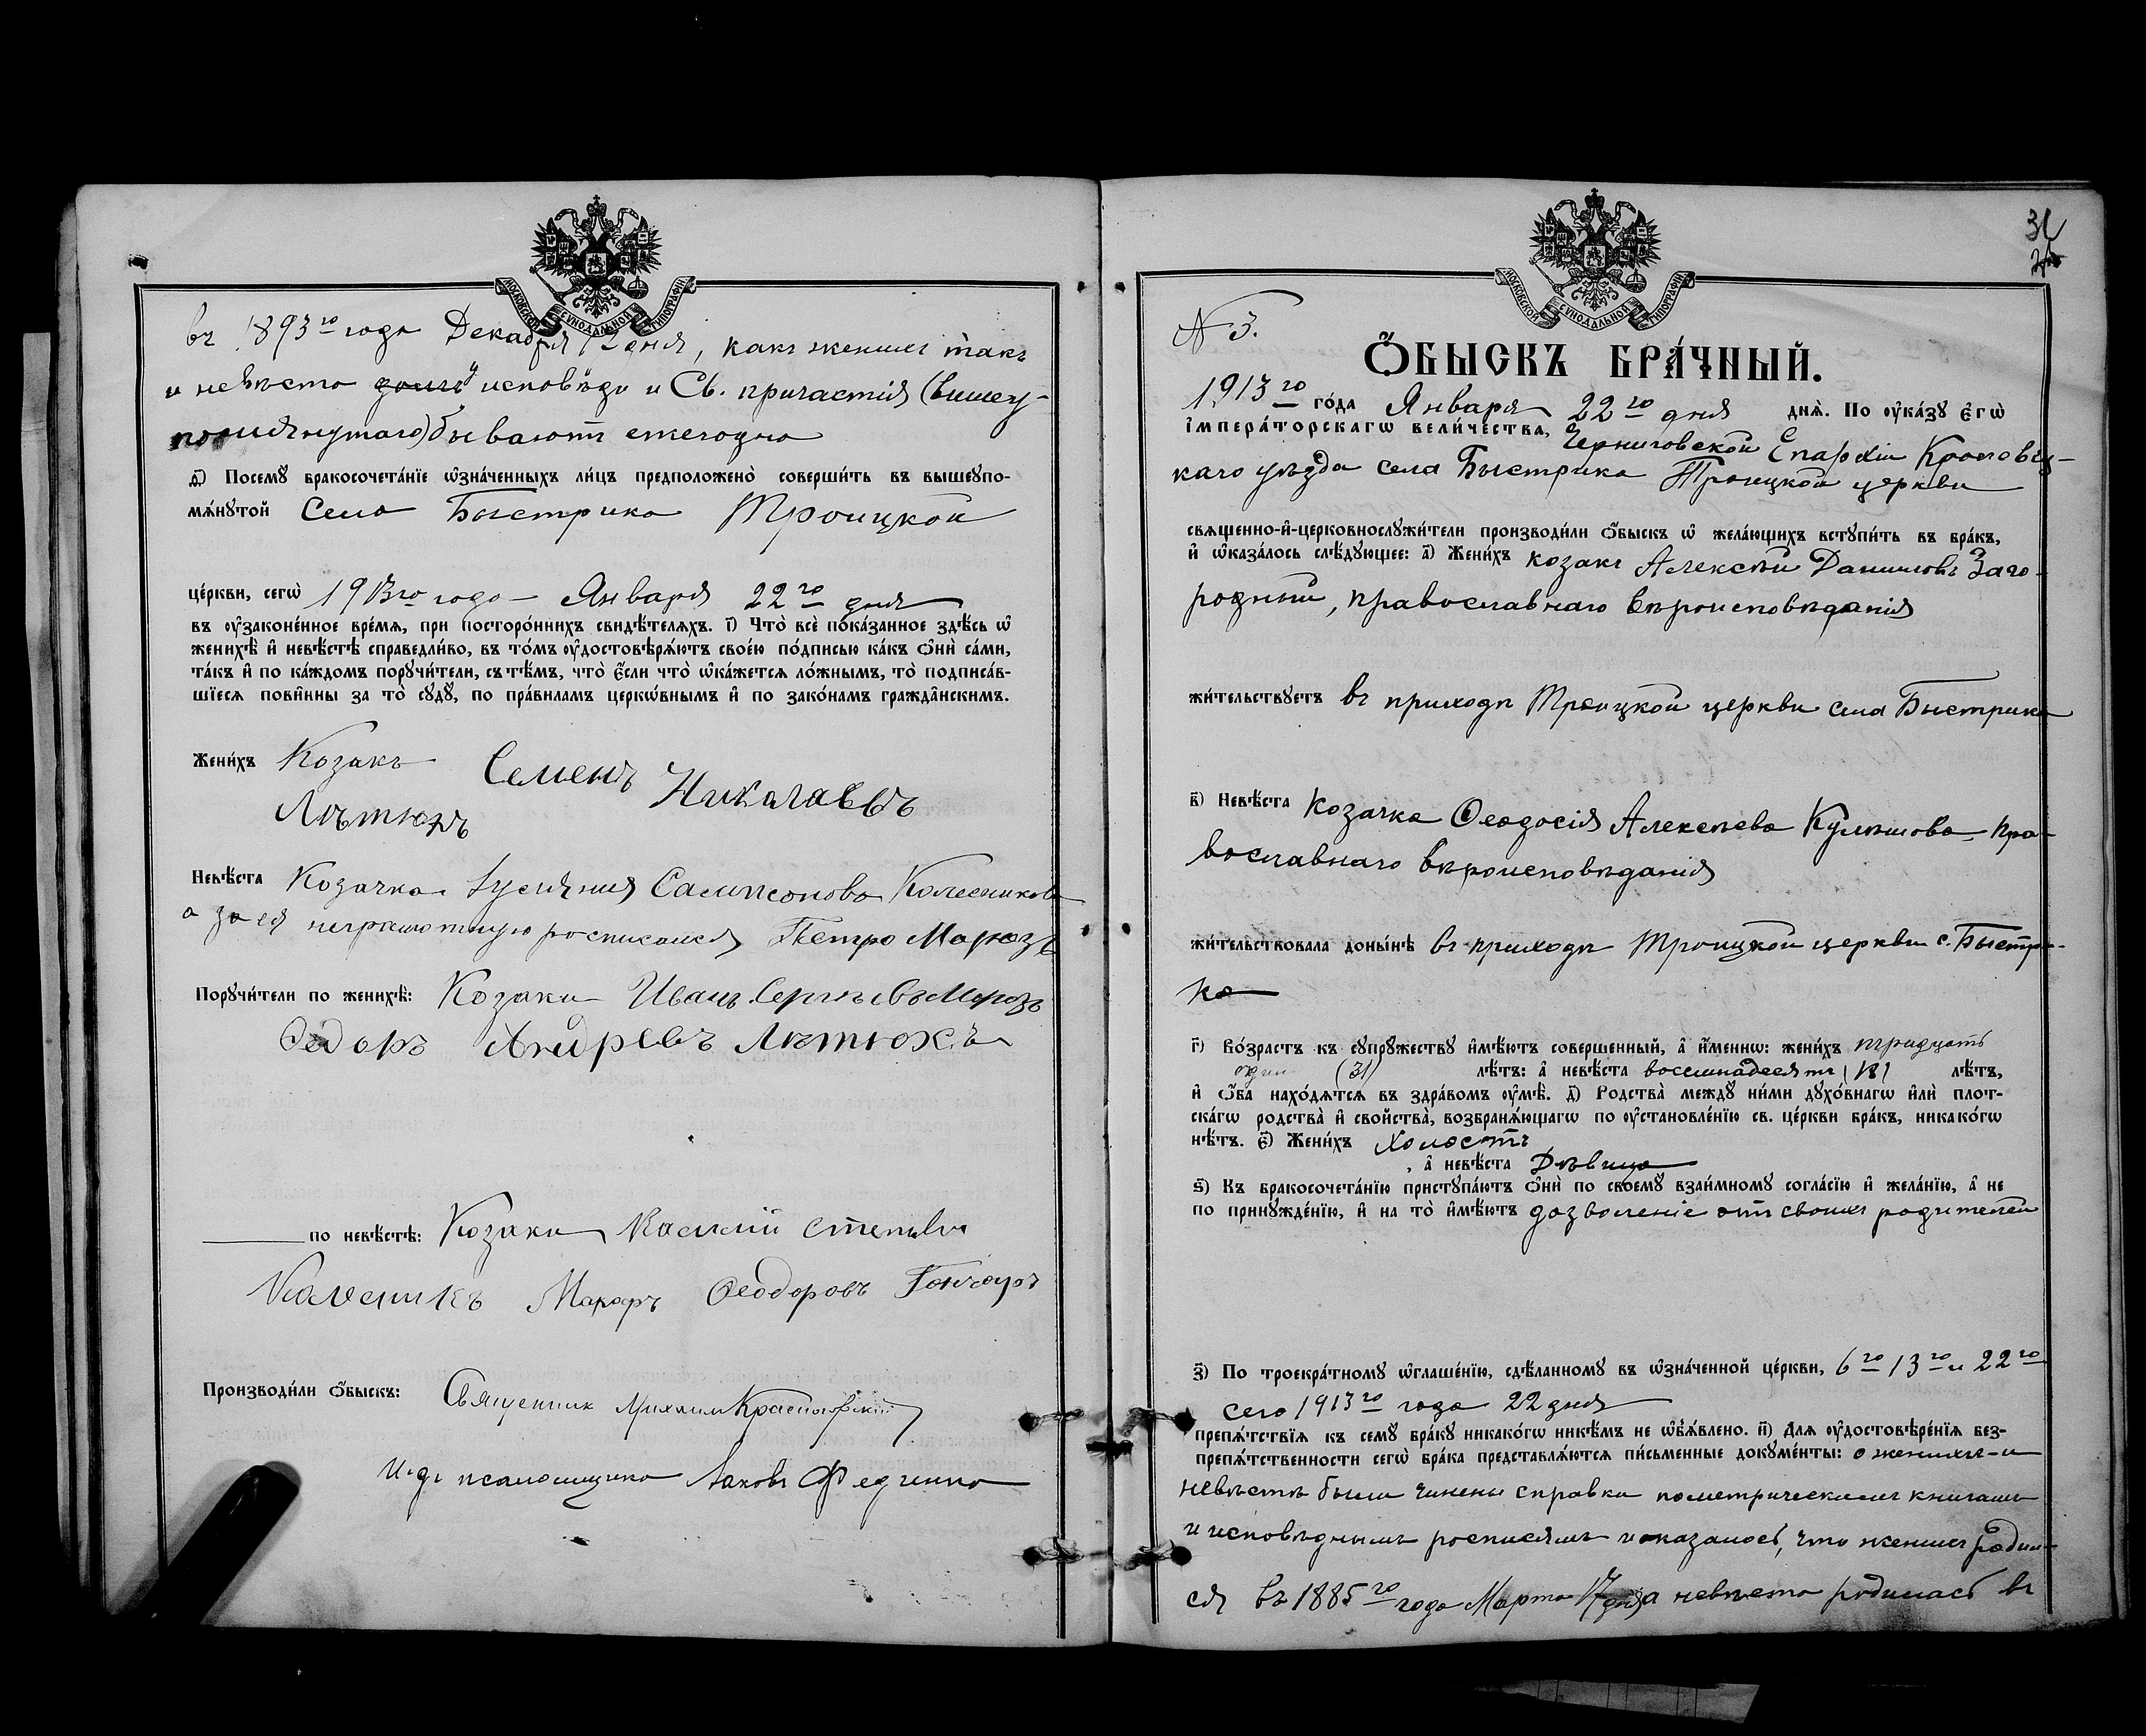 МОСКОВСКОЙ СѴНОДАЛЬНОЙ ТИПОГРАФІИ
въ 1893го года Декабря дня, какъ женихъ такъ
и невѣста долгъ исповѣди и Св. причастія (вышеу-
помянутаго) бываютъ ежегодно
ѳ҃) Посемꙋ бракосочета́нїе ѡ҆зна́ченныхъ ли́цъ предположено̀ соверши́ть въ вышеꙋпо-
мѧ́нꙋтой села Быстрика Троицкой
це́ркви, сегѡ̀ 1913го года Января 22го дня
въ ᲂу҆законе́нное вре́мѧ, при посторо́ннихъ свидѣ́телѧхъ. і҃) Что̀ всѐ пока́занное здѣ́сь ѡ҆
женихѣ̀ и҆ невѣ́стѣ справедли́во, въ то́мъ ᲂу҆достовѣрѧ́ютъ свое́ю по́дписью ка́къ ѻ҆нѝ са́ми,
та́къ и҆ по ка́ждомъ порꙋчи́тели, съ тѣ́мъ, что̀ є҆́сли что̀ ѡ҆ка́жетсѧ ло́жнымъ, то̀ подписа́в-
шїесѧ пови́нны за то̀ сꙋдꙋ̀, по пра́виламъ церкѡ́внымъ и҆ по зако́намъ гражда́нскимъ.
Жени́хъ Козакъ Семенъ Николаевъ
Лѣтюхъ
Невѣ́ста Козачка Сампсонова Колесникова
а за ея неграмотную росписался Петро Марозъ
Порꙋчи́тели по женихѣ̀: Козаки Иванъ Сергѣевъ Морозъ
Ѳедоръ Андревъ Лѣтюхъ
по невѣ́стѣ: Козаки Василій
Колесникъ Макаръ Ѳеодоровъ Гончаръ
Производи́ли ѻ҆́быскъ: Священникъ Михаилъ
И. д. псаломщика Яковъ Федченко
31
МОСКОВСКОЙ СѴНОДАЛЬНОЙ ТИПОГРАФІИ
N 3.
Ѻ҆́БЫСКЪ БРА́ЧНЫЙ.
1913го го́да Января 22го дня днѧ̀. По ᲂу҆ка́зꙋ є҆гѡ̀
і҆мпера́торскагѡ вели́чества, Черниговской Епархіи Кролевец-
каго уѣзда села Быстрика Троицкой церкви
свѧщенно-и҆-церковнослꙋжи́тели производи́ли ѻ҆́быскъ ѡ҆ жела́ющихъ встꙋпи́ть въ бра́къ,
и҆ ѡ҆каза́лось слѣ́дꙋющее: а҃) Жени́хъ козакъ Алексѣй Даниловъ Заго-
родный, православнаго вѣроисповѣданія
жи́тельствꙋетъ въ приходѣ Троицкой церкви села Быстрика
в҃) Невѣ́ста Козачка Ѳеодосія Алексѣева Кулѣшова пра-
вославнаго вѣроисповѣданія
жи́тельствовала доны́нѣ въ приходѣ Троицкой церкви с. Быстри-
ка
г҃) Во́зрастъ къ сꙋпрꙋ́жествꙋ и҆мѣ́ютъ соверше́нный, а҆ и҆́меннѡ: жени́хъ тридцать
одинъ (31) лѣ́тъ: а҆ невѣ́ста восемнадцать (18) лѣ́тъ,
и҆ ѻ҆́ба нахо́дѧтсѧ въ здра́вомъ ᲂу҆мѣ̀. д҃) Родства̀ междꙋ ни́ми дꙋхо́внагѡ и҆лѝ плот-
ска́гѡ родства̀ и҆ свойства̀, возбранѧ́ющагѡ по ᲂу҆становле́нїю св. це́ркви бра́къ, никако́гѡ
нѣ́тъ. є҃) Жени́хъ холостъ
, а҆ невѣ́ста Дѣвица
ѕ҃) Къ бракосочета́нїю пристꙋпа́ютъ ѻ҆нѝ по своемꙋ̀ взаи́мномꙋ согла́сїю и҆ жела́нїю, а҆ не
по принꙋжде́нїю, и҆ на то̀ и҆мѣ́ютъ дозволеніе отъ своихъ родителей
з҃) По троекра́тномꙋ ѡ҆глаше́нїю, сдѣ́ланномꙋ въ ѡ҆зна́ченной це́ркви, 6го 13го и 22го
сего 1913го года 22 дня
препѧ́тствїѧ къ семꙋ̀ бра́кꙋ никако́гѡ никѣ́мъ не ѡ҆бъѧ́влено. и҃) Длѧ ᲂу҆достовѣре́нїѧ без-
препѧ́тственности сегѡ̀ бра́ка представлѧ́ютсѧ пи́сьменные докꙋме́нты: о женихѣ и
невѣстѣ были чинены справки по метрическимъ книгамъ
и исповѣднымъ росписямъ и оказалось, что женихъ родил-
ся въ 1885го года Марта 17 дня а невѣста родилась въ